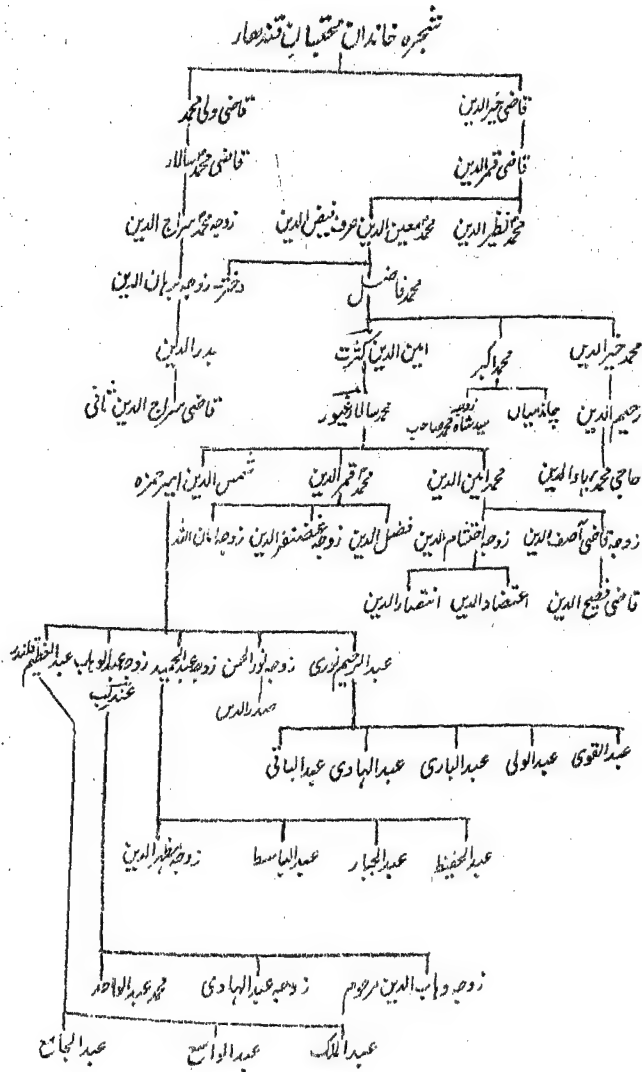 شجرہ خاندان محتسبانِ قندھار
قاضی خیرالدین قاضی ولی محمد
قاضی قمرالدین قاضی محمد سالار
محمد نظیرالدین محمد معین الدین عرف فیض الدین زوجہ محمد سراج الدین
محمد فاضل دختر زوجہ برہان الدین
محمد خیرالدین محمد اکبر امین الدین کثرت بدرالدین
رحیم الدین چاند میاں زوجہ سید شاہ محمد صاحب محمد سالار غیور قاضی سراج الدین ثانی
حاجی محمد بہاءالدین محمد امین الدین محمد قمرالدین شمس الدین امیر حمزہ
زوجہ قاضی آصف الدین زوجہ احتشام الدین فضل الدین زوجہ غضنفرالدین زوجہ امان اللہ
قاضی فصیح الدین اعتضادالدین انتصارالدین
عبدالرحیم نوری زوجہ نورالحسن زوجہ عبدالحمید زوجہ عبدالوہاب عندلیب عبدالعظیم
صدرالدین
عبدالقوی عبدالولی عبدالباری عبدالہادی عبدالباقی
عبدالحفیظ عبدالجبار عبدالباسط زوجہ مظہرالدین
زوجہ وہاب الدین مرحوم زوجہ عبدالہادی محمد عبدالواحد
عبدالملک عبدالواسع عبدالجامع